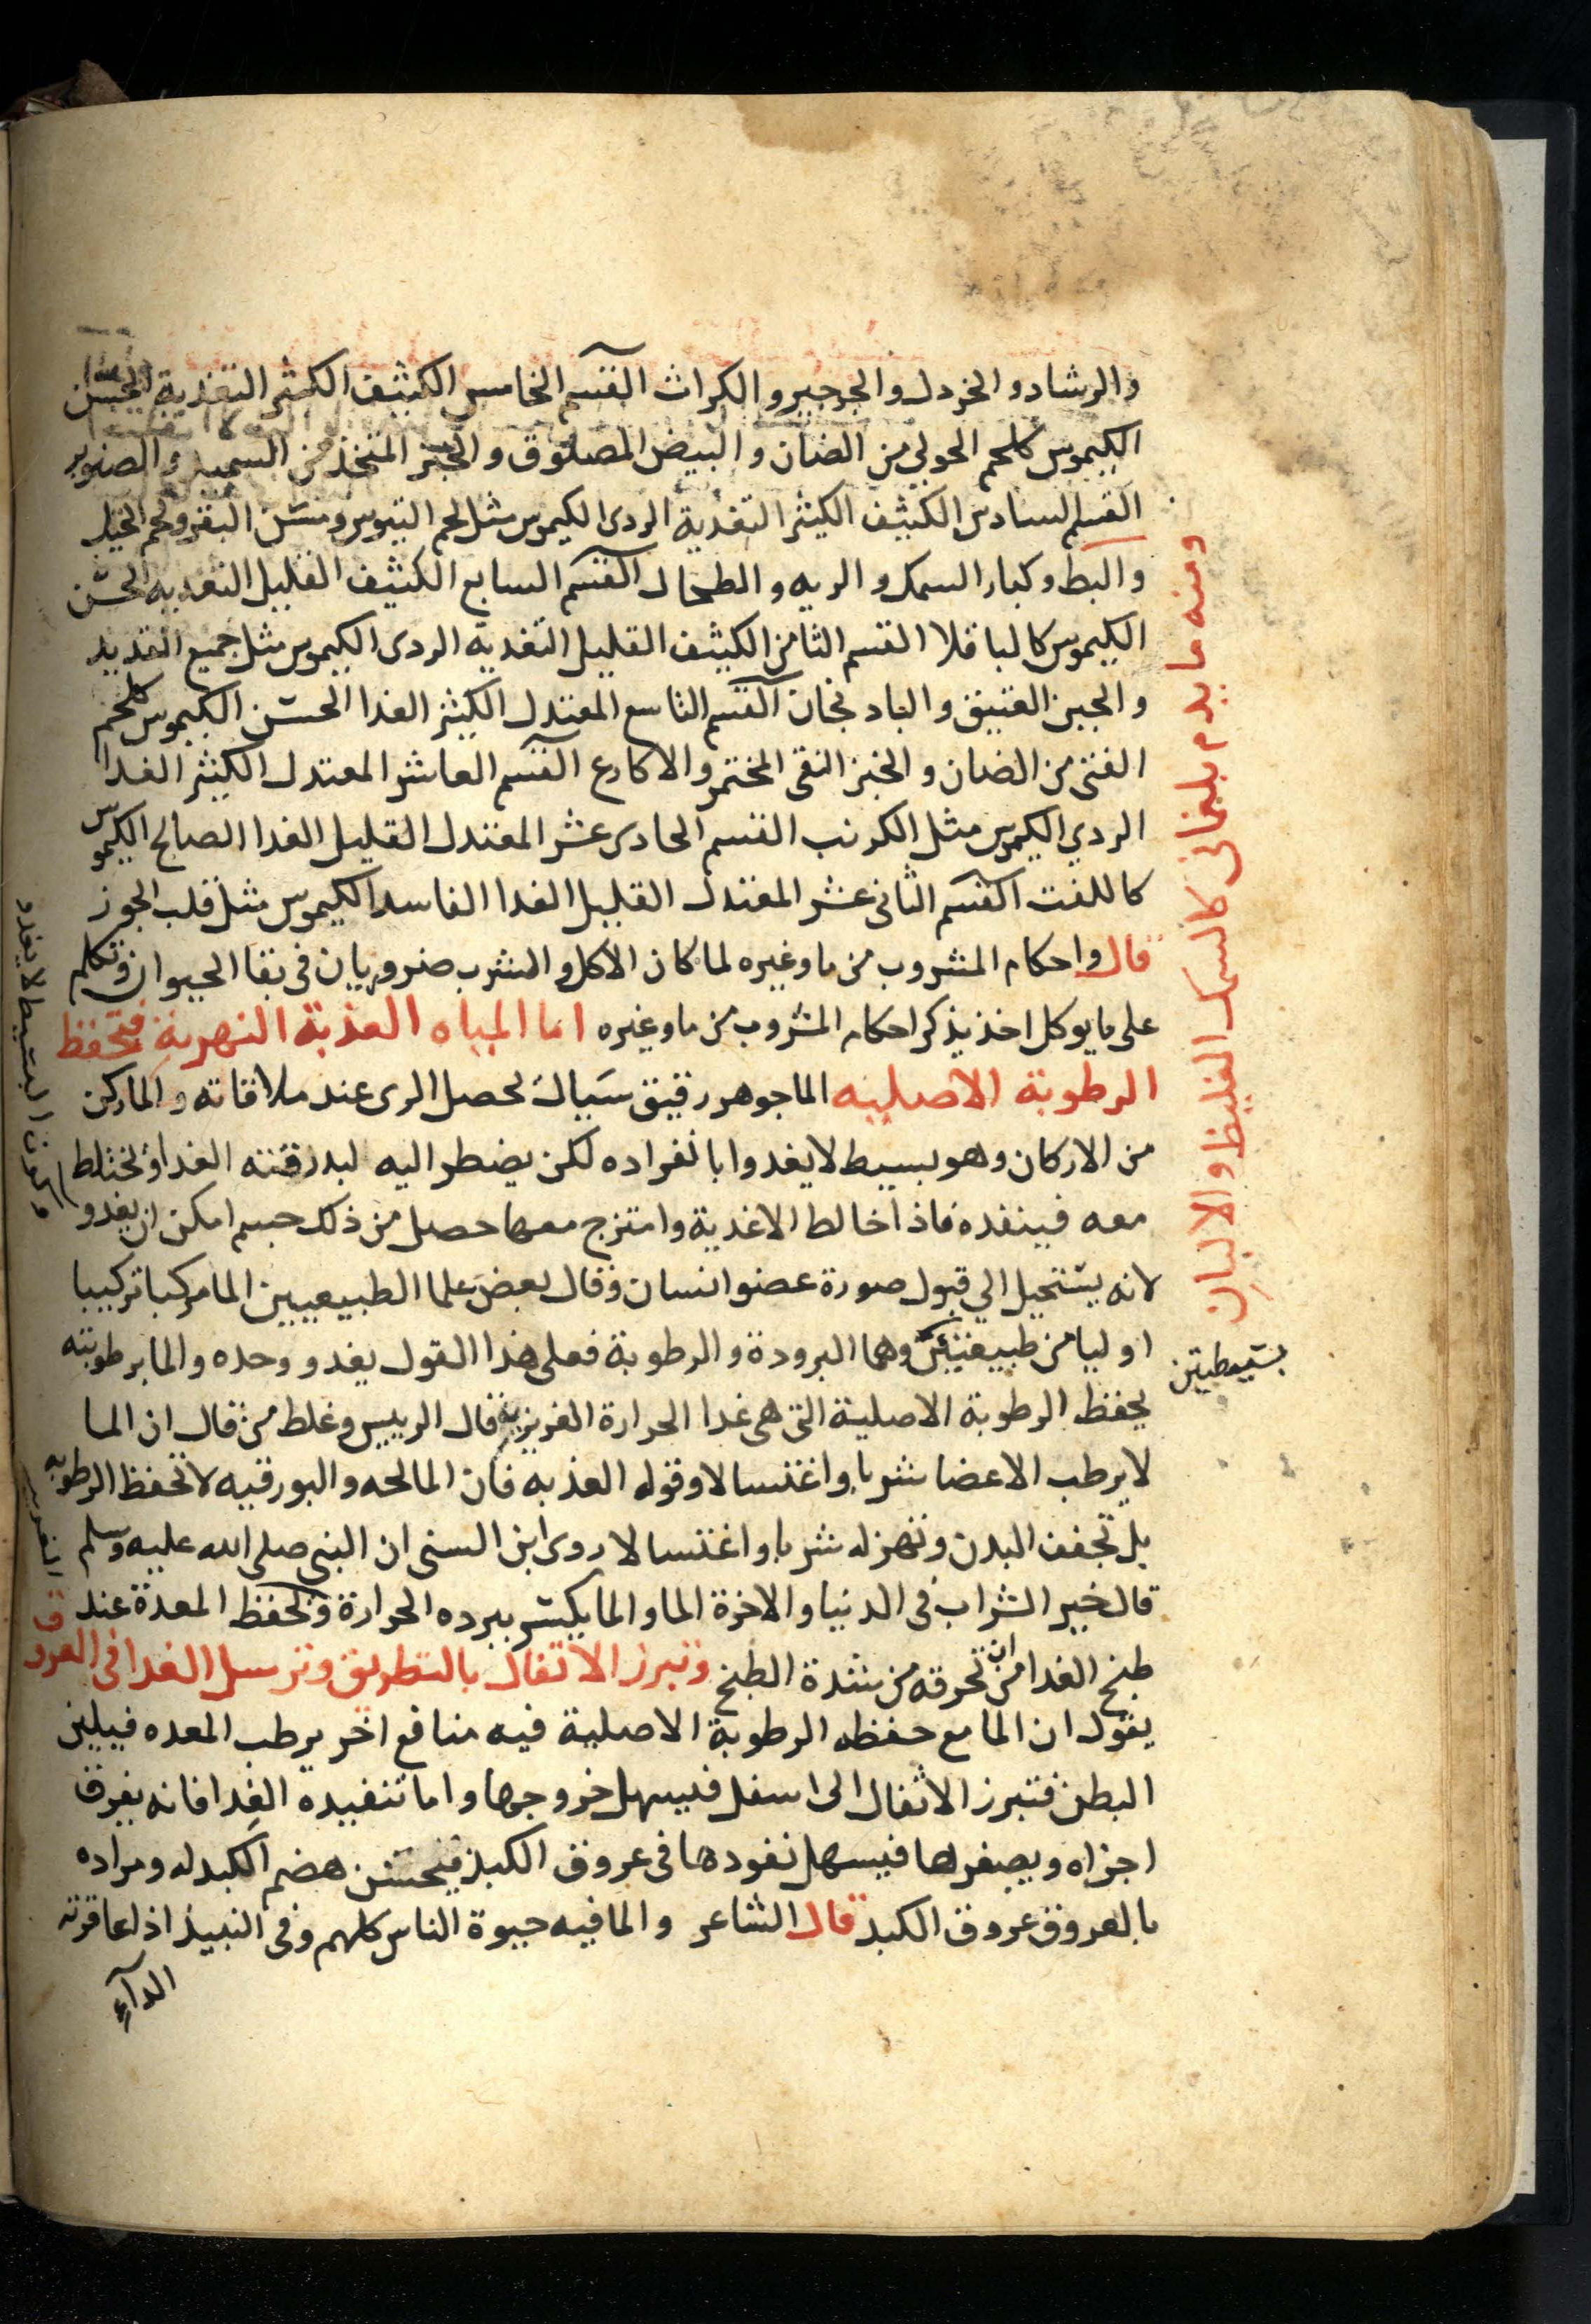 والرشاد والخردل والجرجير والكراث القسم الخامس الكثيف الكثير التغذية الحسن
الكيموس كلحم الحولي من الضان والبيض المصلوق والخبز المتخذ من السميد والصنوبر
القسم السادس الكثيف الكثير التغذية الردى الكيموس مثل لحم التيوس ومسن البقر ولحم الخيل
والبط وكبار السمك والريه والطحال القسم السابع الكثيف القليل التغذيه الحسن
الكيموس كالباقلا القسم الثامن الكثيف القليل التغذيه الردى الكيموس مثل جميع القديد
والجبن العتيق والبادنجان القسم التاسع المعتدل الكثير الغدا الحسن الكيموس كلحم
الفتى من الضان والخبز النقى المختمر والاكارع القسم العاشر المعتدل الكثير الغدا
الردي الكيموس مثل الكرنب القسم الحادى عشر المعتدل القليل الغدا الصالح الكيموس
كاللفت القسم الثانى عشر المعتدل القليل الغدا الفاسد الكيموس مثل قلب الجوز
قال واحكام المشروب من ما وغيره لما كان الاكل والشرب ضروريان فى بقا الحيوان وتكلم
على ما يوكل اخذ يذكر احكام المشروب من ما وغيره اما المياه العذبة النهرية فتحفظ
الرطوبة الاصليه الما جوهر رقيق سيال يحصل الرى عند ملاقاته والما ركن
من الاركان وهو بسيط لا يغدوا بانفراده لكن يضطر اليه لبدرقته الغدا ويختلط
معه فينفده فاذا خالط الاغدية وامتزج معها حصل من ذلك جسم امكن ان يغدو
لانه يستحيل الي قبول صورة عضو انسان وقال بعض علما الطبيعيين الما مركبا تركيبا
اوليا من طبيعتين وهما البرودة والرطوبة فعلى هذا القول يغدو وحده والما برطوبته
يحفظ الرطوبة الاصلية التى هى غدا الحرارة الغريزية قال الرييس وغلط من قال ان الما
لا يرطب الاعضا شربا واغتسالا وقوله العذبه فان المالحه والبورقيه لا تحفظ الرطوبه
بل تجفف البدن وتهزله شربا واغتسالا روى ابن السنى ان النبى صلى الله عليه وسلم
قال خير الشراب فى الدنيا والاخرة الما والما يكسر ببرده الحرارة ويحفظ المعدة عند
طبخ الغدا من ان تحرقه من شدة الطبخ وتبرز الاتفال بالتطريق وترسل الغدا فى العروق
يقول ان الما مع حفظه الرطوبة الاصلية فيه منافع اخر يرطب المعده فيلين
البطن فتبرز الاثفال الى اسفل فيسهل خروجها واما تنفيده الغدا فانه يفرق
اجزاه ويصغرها فيسهل نفودها فى عروق الكبد فيحسن هضم الكبد له ومراده
بالعروق عروق الكبد قال الشاعر والما فيه حيوة الناس كلهم وفى النبيذ اذا عاقرته
الدآء
ومنه ما يدم بلغمانى كالسمك الغليظ والالبان
بسيطتين
وكون البسيط لا يغدو